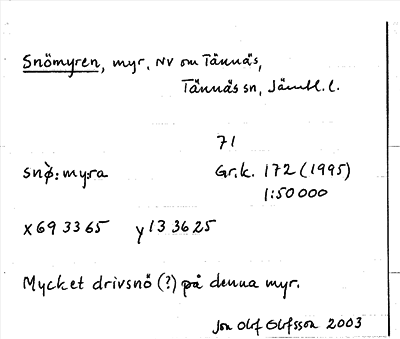 Snömyren, myr, NV om Tännäs,
Tännäs sn, Jämtl. l.
71
snø̀: my:ra Gr.k. 172 (1995)
1:50 000
x 69 33 65 y 13 36 25
Mycket drivsnö (?) på denna myr.
Jon Olof Olofsson 2003